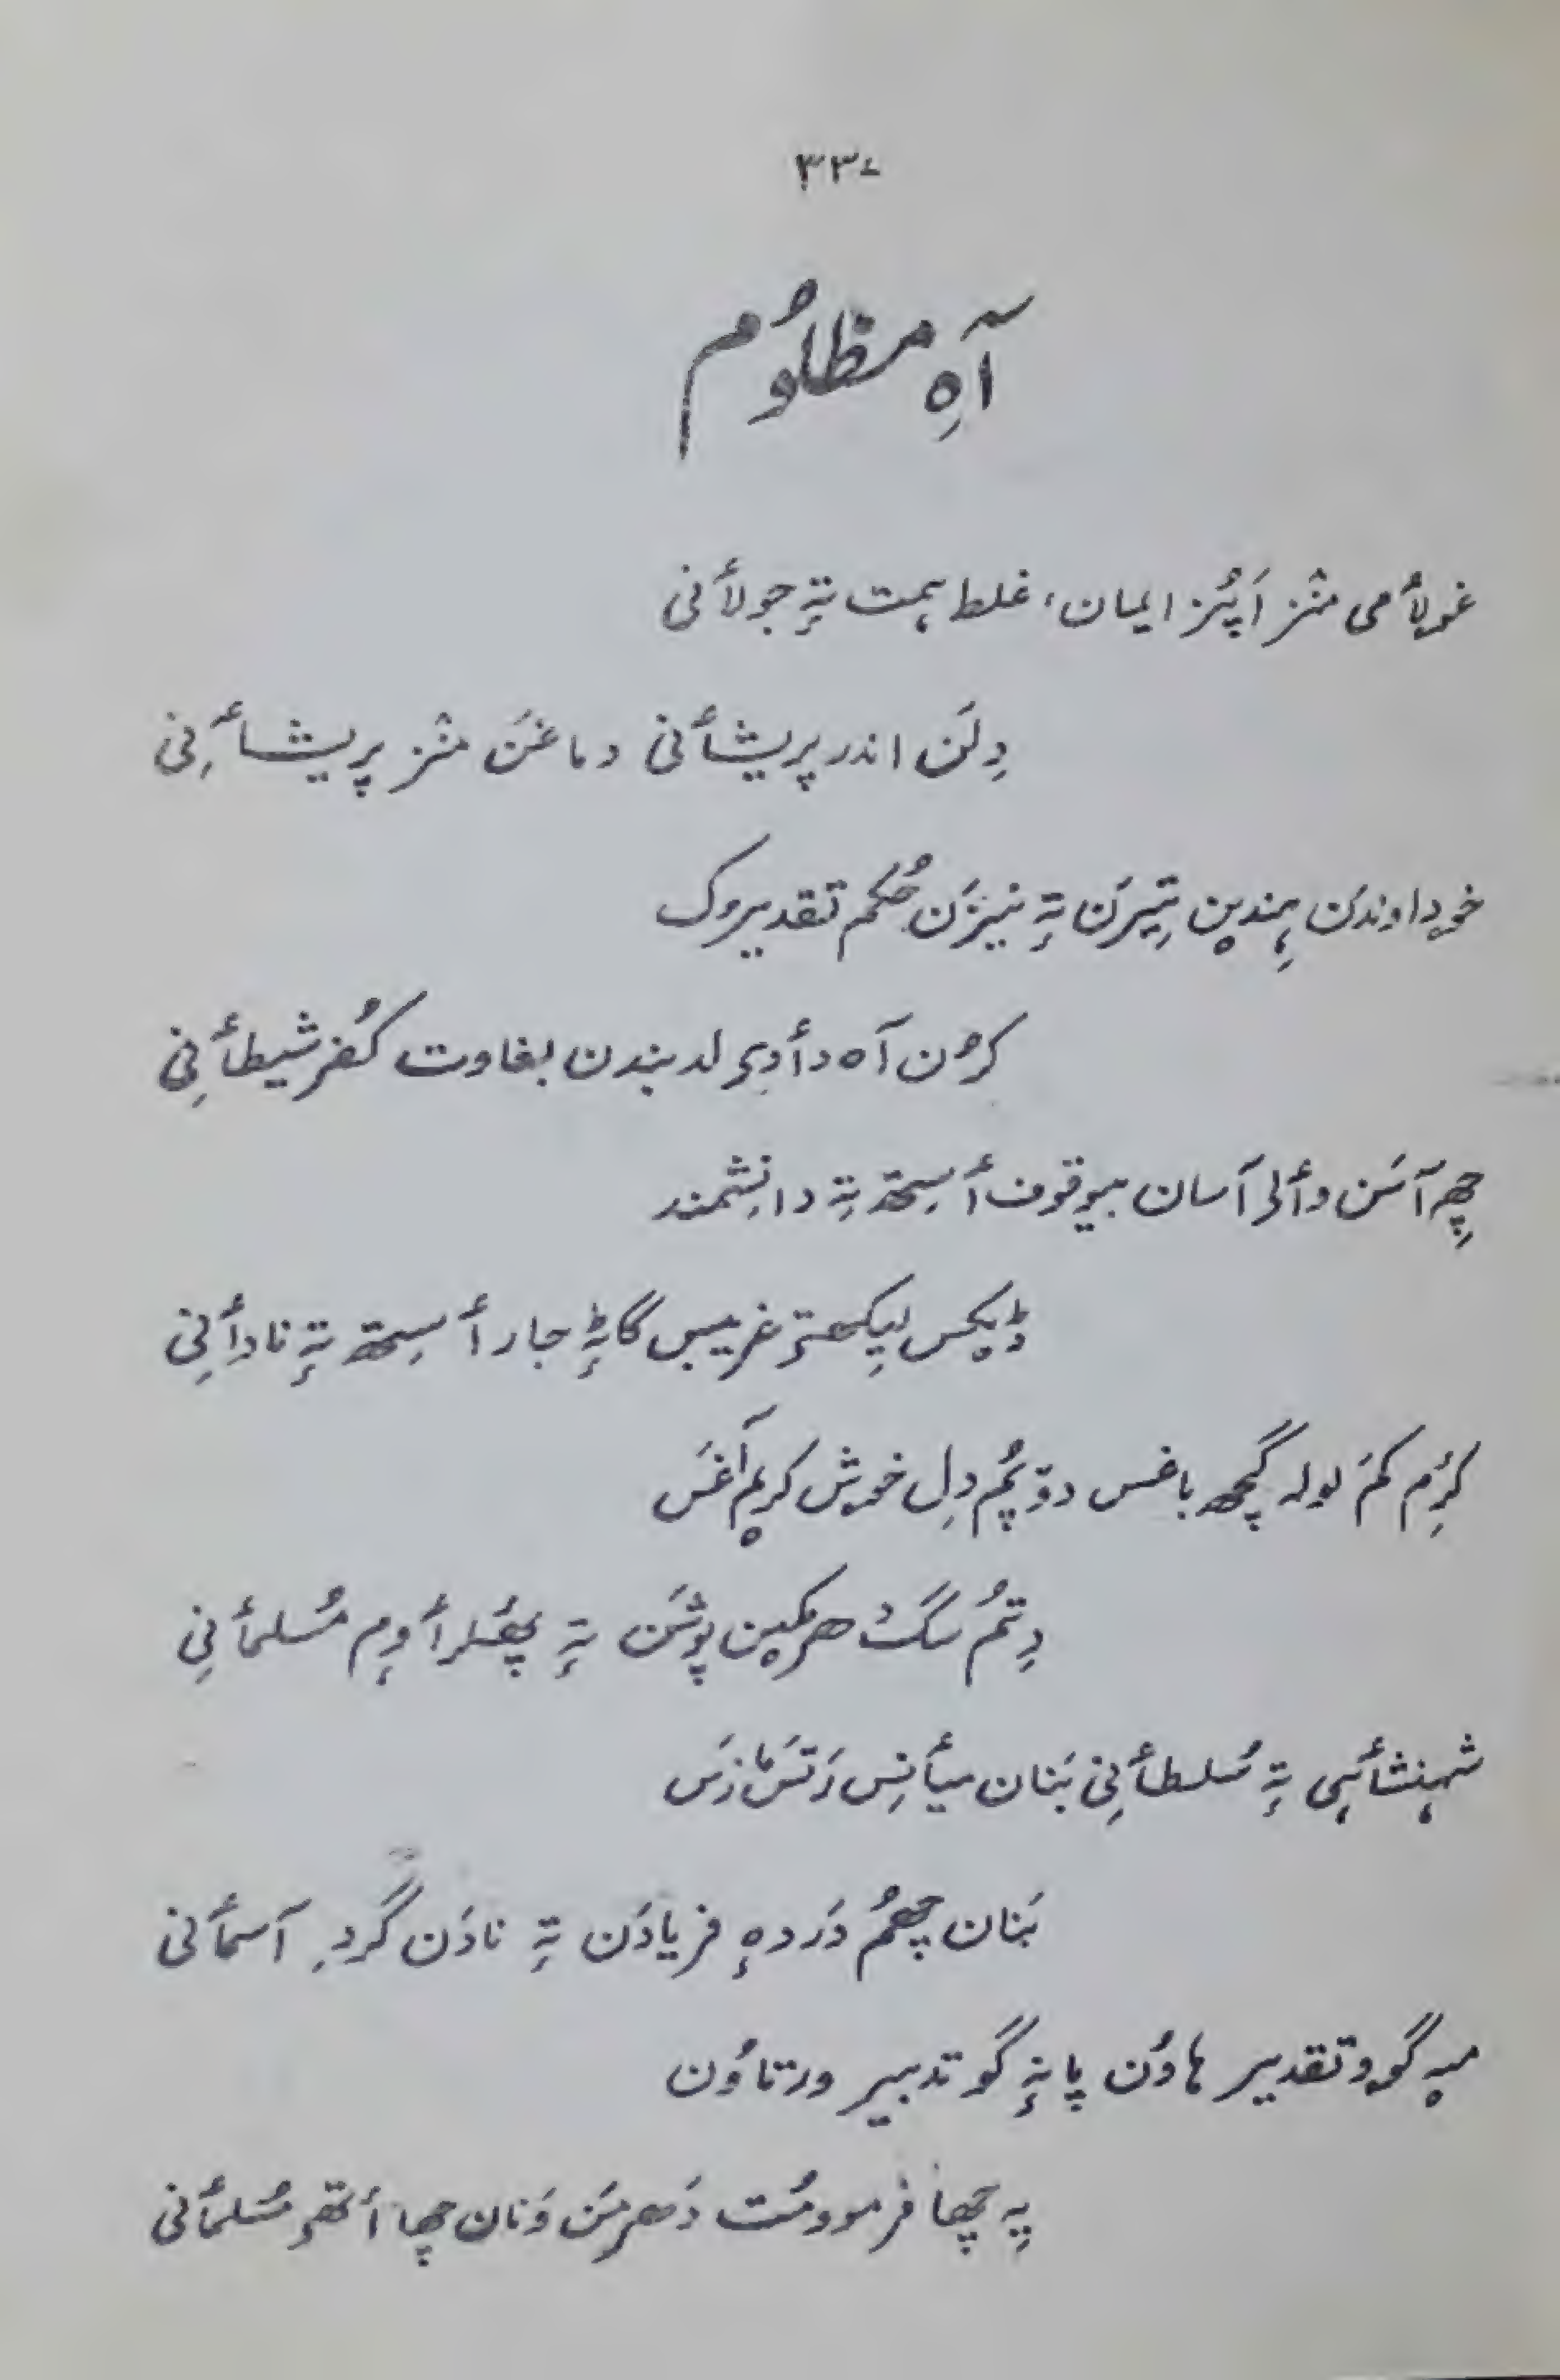 ۳۳۷
آہِ مظلوٗم
غولأمی منٛز اَپُز ایمان، غلط ہمت تہٕ جولأنی
دِلَن اندر پریشأنی دماغَن منٛز پریشأنِی
خوداوندَن ہِندیٖن تیٖرَن تہٕ نیزَن حُکم تقدیروک
کرُن آہ دأدی لد بندن بغاوت کُفر شیطأنِی
چھِ آسَن وألی آسان بیوقوف أسِتھ تہٕ دانِشمند
غریبس گاٹہٕ جار أسِتھ تہٕ نادأنِی
کرِٛم کَم لولہ گچھ باغس دوٚپُم دِل خوش کریٚم آغَس
دِتُم سگ هر مکین پوشَن تہٕ مُسلمأنِی
شہنشأہی تہٕ سُلطأنِی بَنان میأنِس رَتَس مازَس
بَنان چھُم دَردہٕ فریادَن تہٕ نادَن گردِ آسمأنی
میہ گوو تقدیر ہاوُن پانہٕ گو تدبیر ورتاوُن
یہِ چھا فرموومُت دَھرمَن وَنان چھا أتھی مُسلمأنی